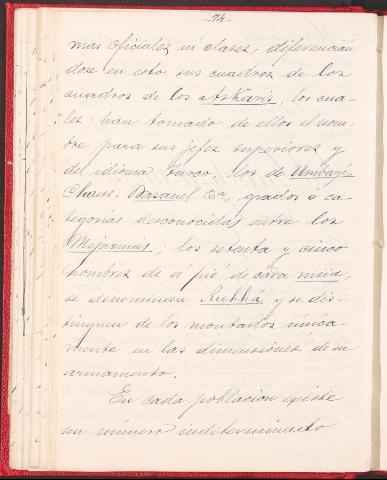 74
mas oficiales ni clases, diferencian
dose en esto sus cuadros de los
cuadros de los Askaris, los cua-
les han tomado de ellos el nom-
bre para sus jefes superiores y
del idioma turco, los de Umbayi,
Chaus, Basanel &a, grados ó ca-
tegorias desconocidas entre los
Mejaznias; los setenta y cinco
hombres de á pié de cada mia,
se denominan Riehhá y se dis-
tinguen de los montados única-
mente en las dimensiones de su
armamento.
En cada población existe
un número indeterminado